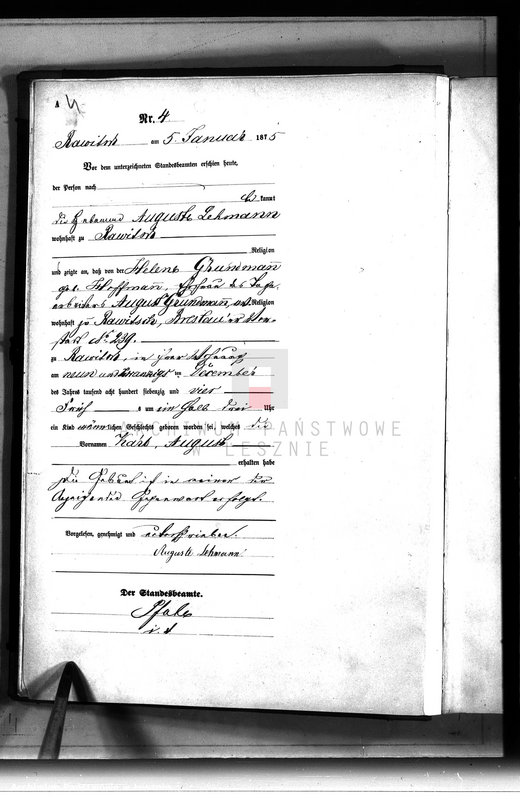 A
4
Nr. 4
Rawitsch am 5. Januar 1875
Vor dem unterzeichneten Standesbeamten erschien heute,
der Person nach
kannt
die Hebamme Auguste Lehmann
wohnhaft zu Rawitsch
Religion
und zeigte an, daß von der Helene Grundmann
geb. Hoffmann, Ehefrau des Tage
arbeiters August Grundmann, ev. Religion
wohnhaft zu Rawitsch, Breslauer Vor-
stadt No 239.
zu Rawitsch, in ihrer Wohnung
am neun und zwanzigsten December
des Jahres tausend acht hundert siebenzig und vier
Früh um ein halb drei Uhr
ein Kind männlichen Geschlechts geboren worden sei, welches die
Vornamen Karl, August
erhalten habe
Die Geburt ist in meiner der
Anzeigenden Gegenwart erfolgt.
Vorgelesen, genehmigt und unterschrieben.
Auguste Lehmann
Der Standesbeamte.
ARCHIWUM PAŃSTWOWE
W LESZNIE